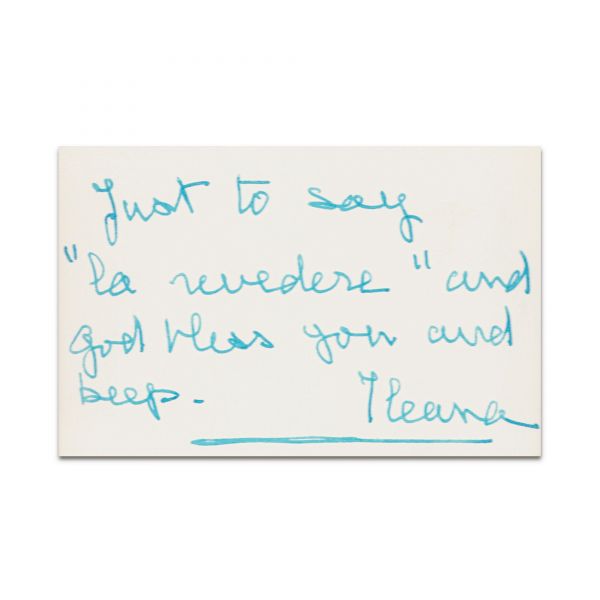 Just to say
"la revedere" and
god bless you and
keep.- Ileana